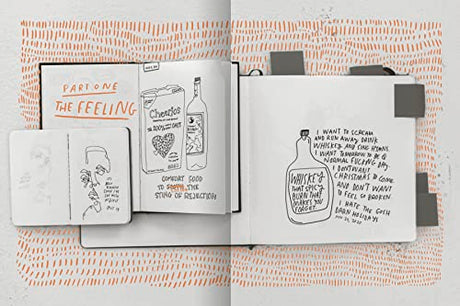 PART ONE
THE FEELING
Cheerios
COMFORT FOOD
TO THE
STING OF REJECTION
WHISKEY
THAT SPICY
BURN THAT
MAKES YOU
FORGET
I WANT TO SCREAM
AND RUN AWAY. DRINK
WHISKEY AND SING HYMNS.
I WANT TOMORROW TO BE A
NORMAL FUCKING DAY.
I DON'T WANT
CHRISTMAS TO COME
AND DON'T WANT
TO FEEL SO BROKEN
I HATE THE GOSH
DARN HOLIDAYS